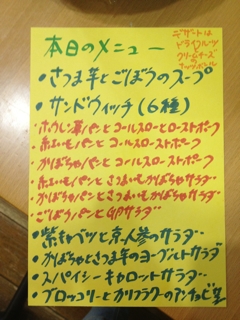 本日のメニュー
デザートは
ドライフルーツ
クリームチーズの
ナッツボール
・さつま芋とごぼうのスープ
・サンドウィッチ(6種)
・ホウレン草パンとコールスローとローストポーク
・紅いもパンとコールスローローストポーク
・かぼちゃパンとコールスローローストポーク
・紅いもパンとさつまいもかぼちゃサラダ
・かぼちゃパンとさつまいもかぼちゃサラダ
・ごぼうパンと
サラダ
・紫キャベツと京人参のサラダ
・かぼちゃとさつま芋のヨーグルトサラダ
・スパイシーキャロットサラダ
・ブロッコリーとカリフラワーのアンチョビ